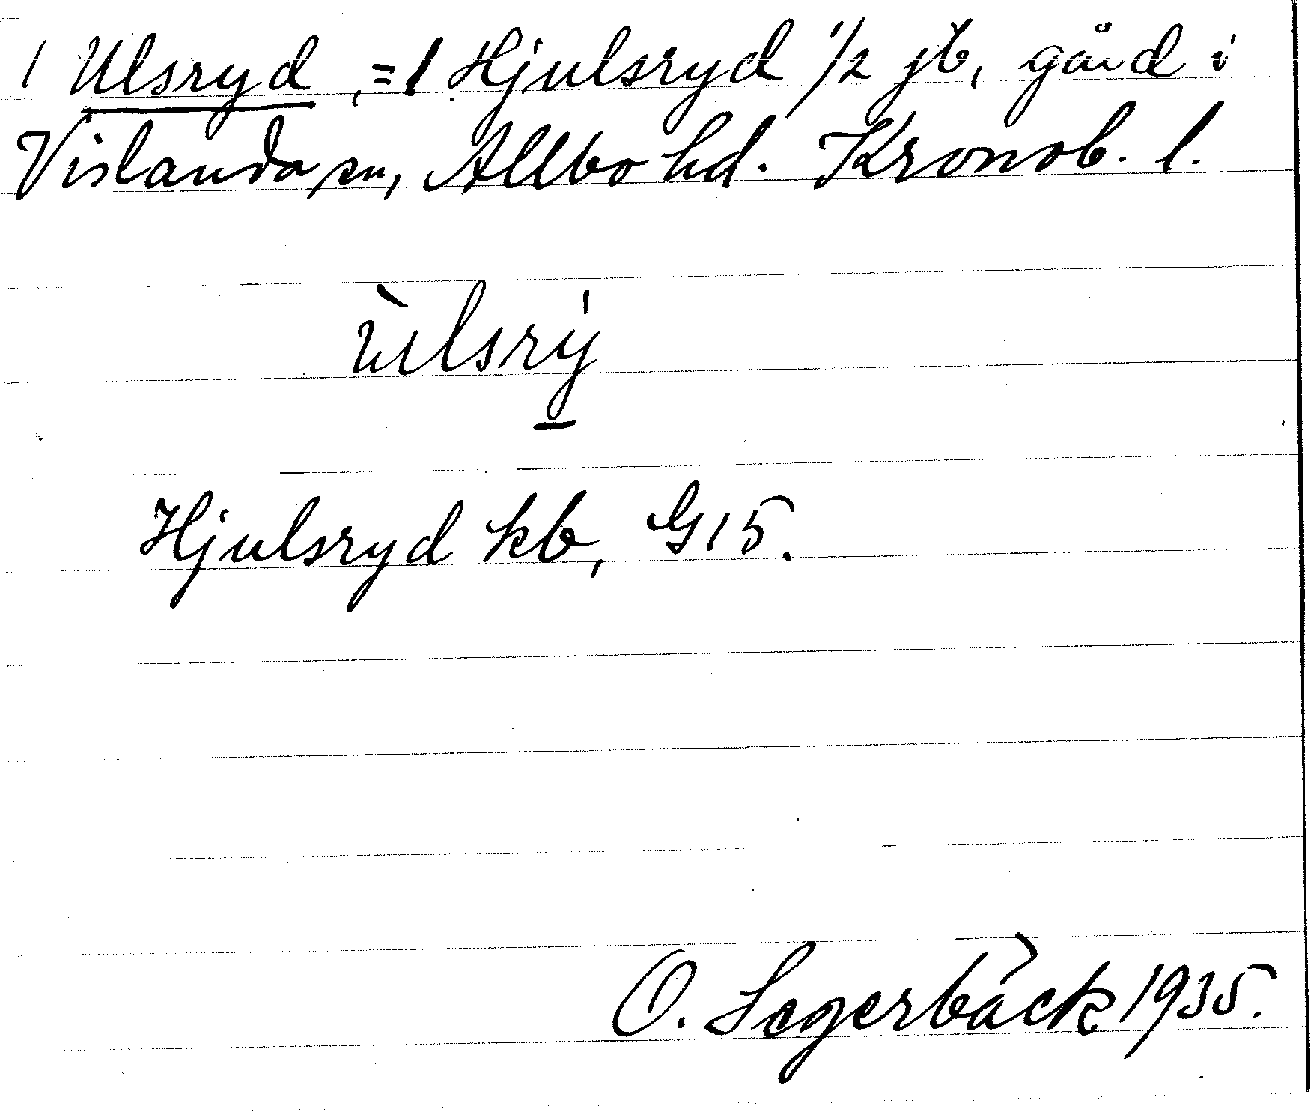 1 Ulsryd, =1 Hjulsryd 1/2 jb, gård i
Vislanda sn, Allbo hd. Kronob. l.
ùlsrý
Hjulsryd kb, G15.
O. Segerbäck 1935.